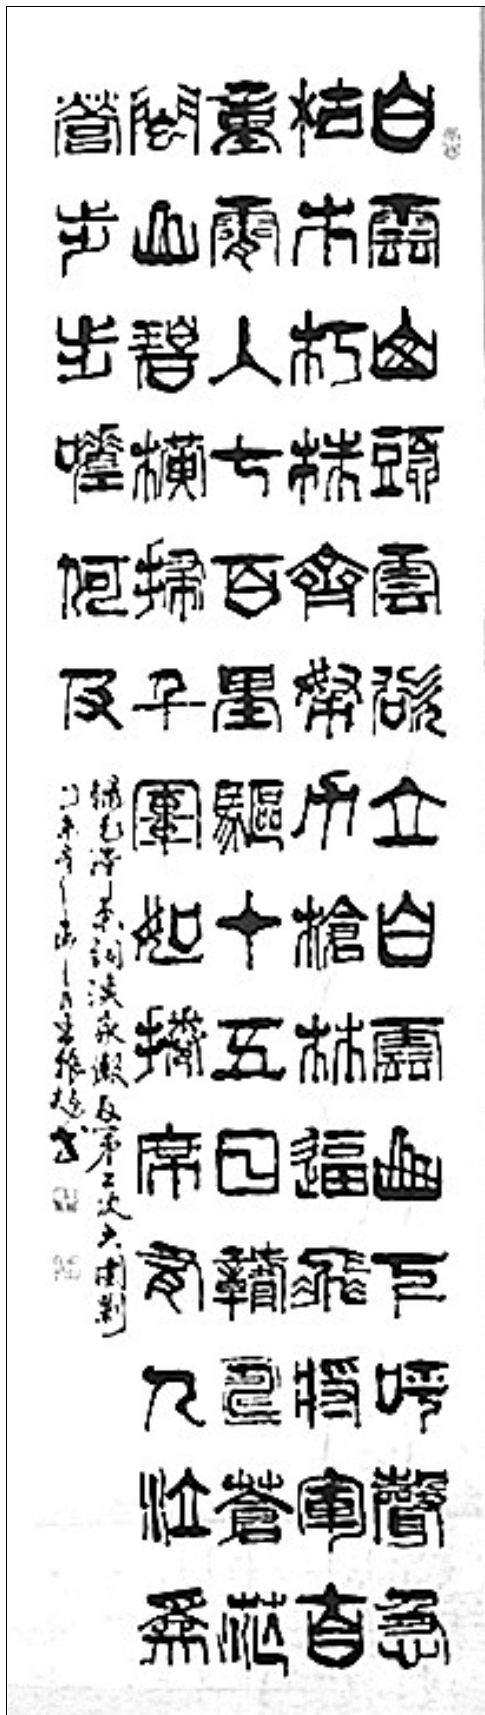 白雲山頭雲欲立白雲山下呼聲急
枯木朽株齊努力槍林逼飛將軍自
重霄入七百里驅十五日贛水蒼茫
閩山碧橫掃千軍如捲席有人泣為
營步步嗟何及
録毛澤東詞漁家傲反第二次大圍剿